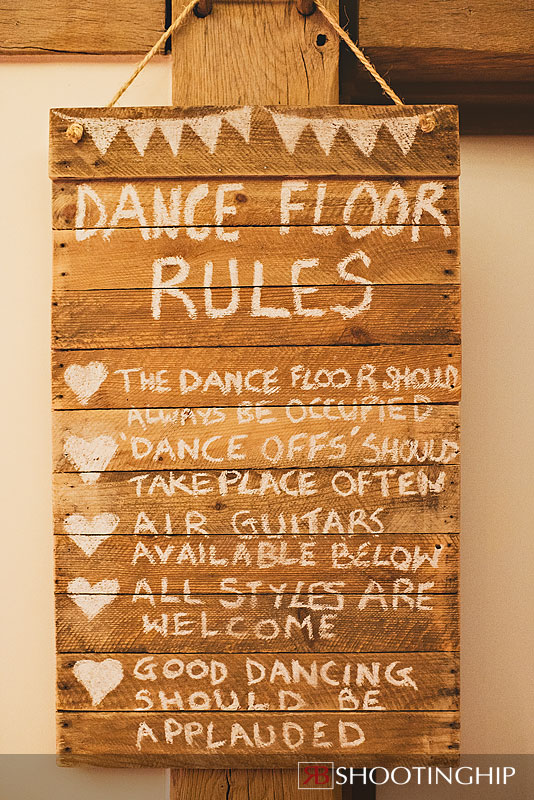 DANCE FLOOR
RULES
THE DANCE FLOOR SHOULD
ALWAYS BE OCCUPIED
'DANCE OFFS' SHOULD
TAKE PLACE OFTEN
AIR GUITARS
AVAILABLE BELOW
ALL STYLES ARE
WELCOME
GOOD DANCING
SHOULD BE
APPLAUDED
RB SHOOTINGHIP